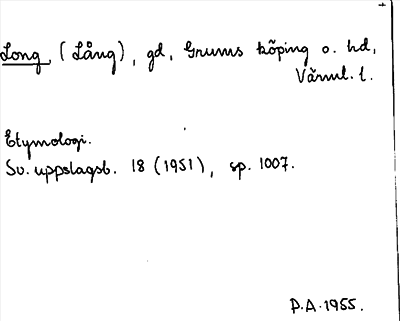 Long, (Lång), gd, Grums köping o. hd,
Värml. l.
Etymologi.
Sv. uppslagsb. 18 (1951), sp. 1007.
P.A. 1955.